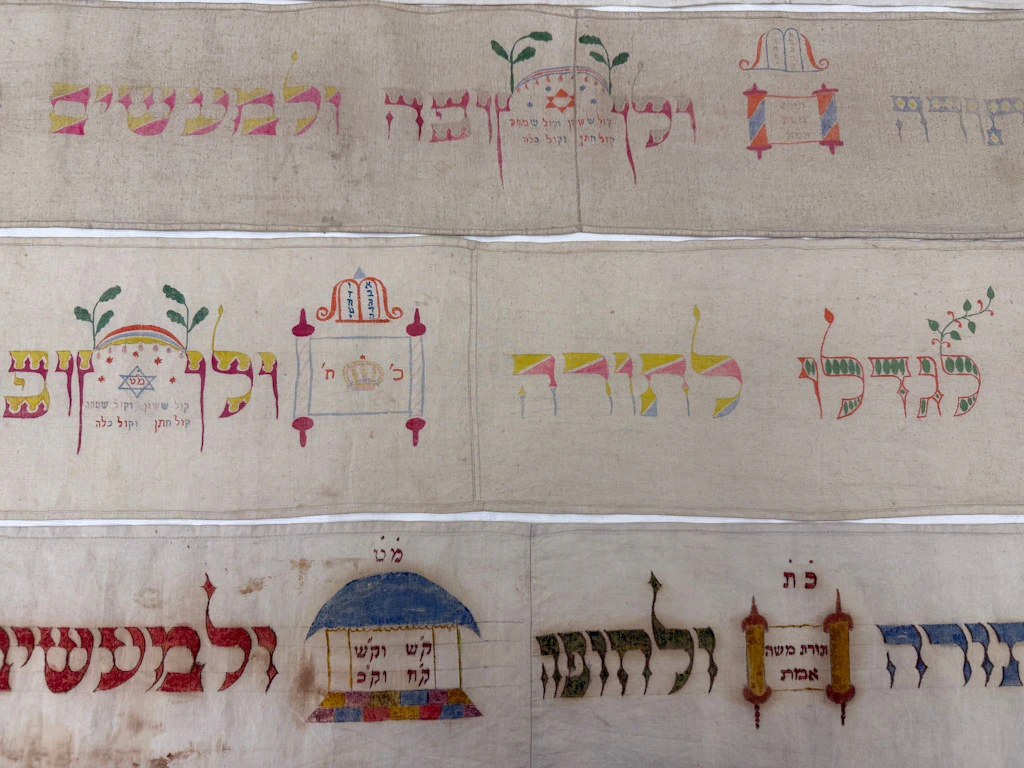 תורה
משה
ולחופה
קול ששון וקול שמחה
קול חתן וקול כלה
ולמעשים
לגדלו
לתורה
א ו
ב ז
ג ח
ד ט
ה י
כ' ת'
ולחופ
מ ט
קול ששון וקול שמחה
קול חתן וקול כלה
תורה
כ ת
ותורת משה
אמת
ולחופה
מ ט
ק״ש וק״ש
ק״ח וק״כ
ולמעשים